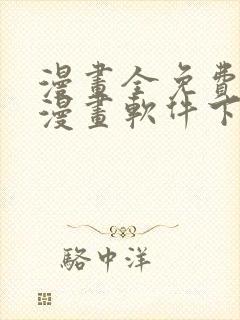 漫畫全免費
漫畫軟件下
駱中洋